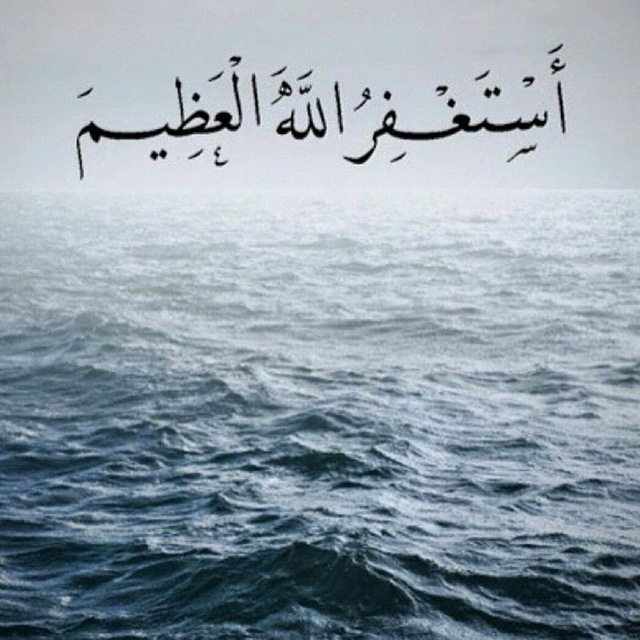 أَسْتَغْفِرُ اللَّهَ الْعَظِيمَ